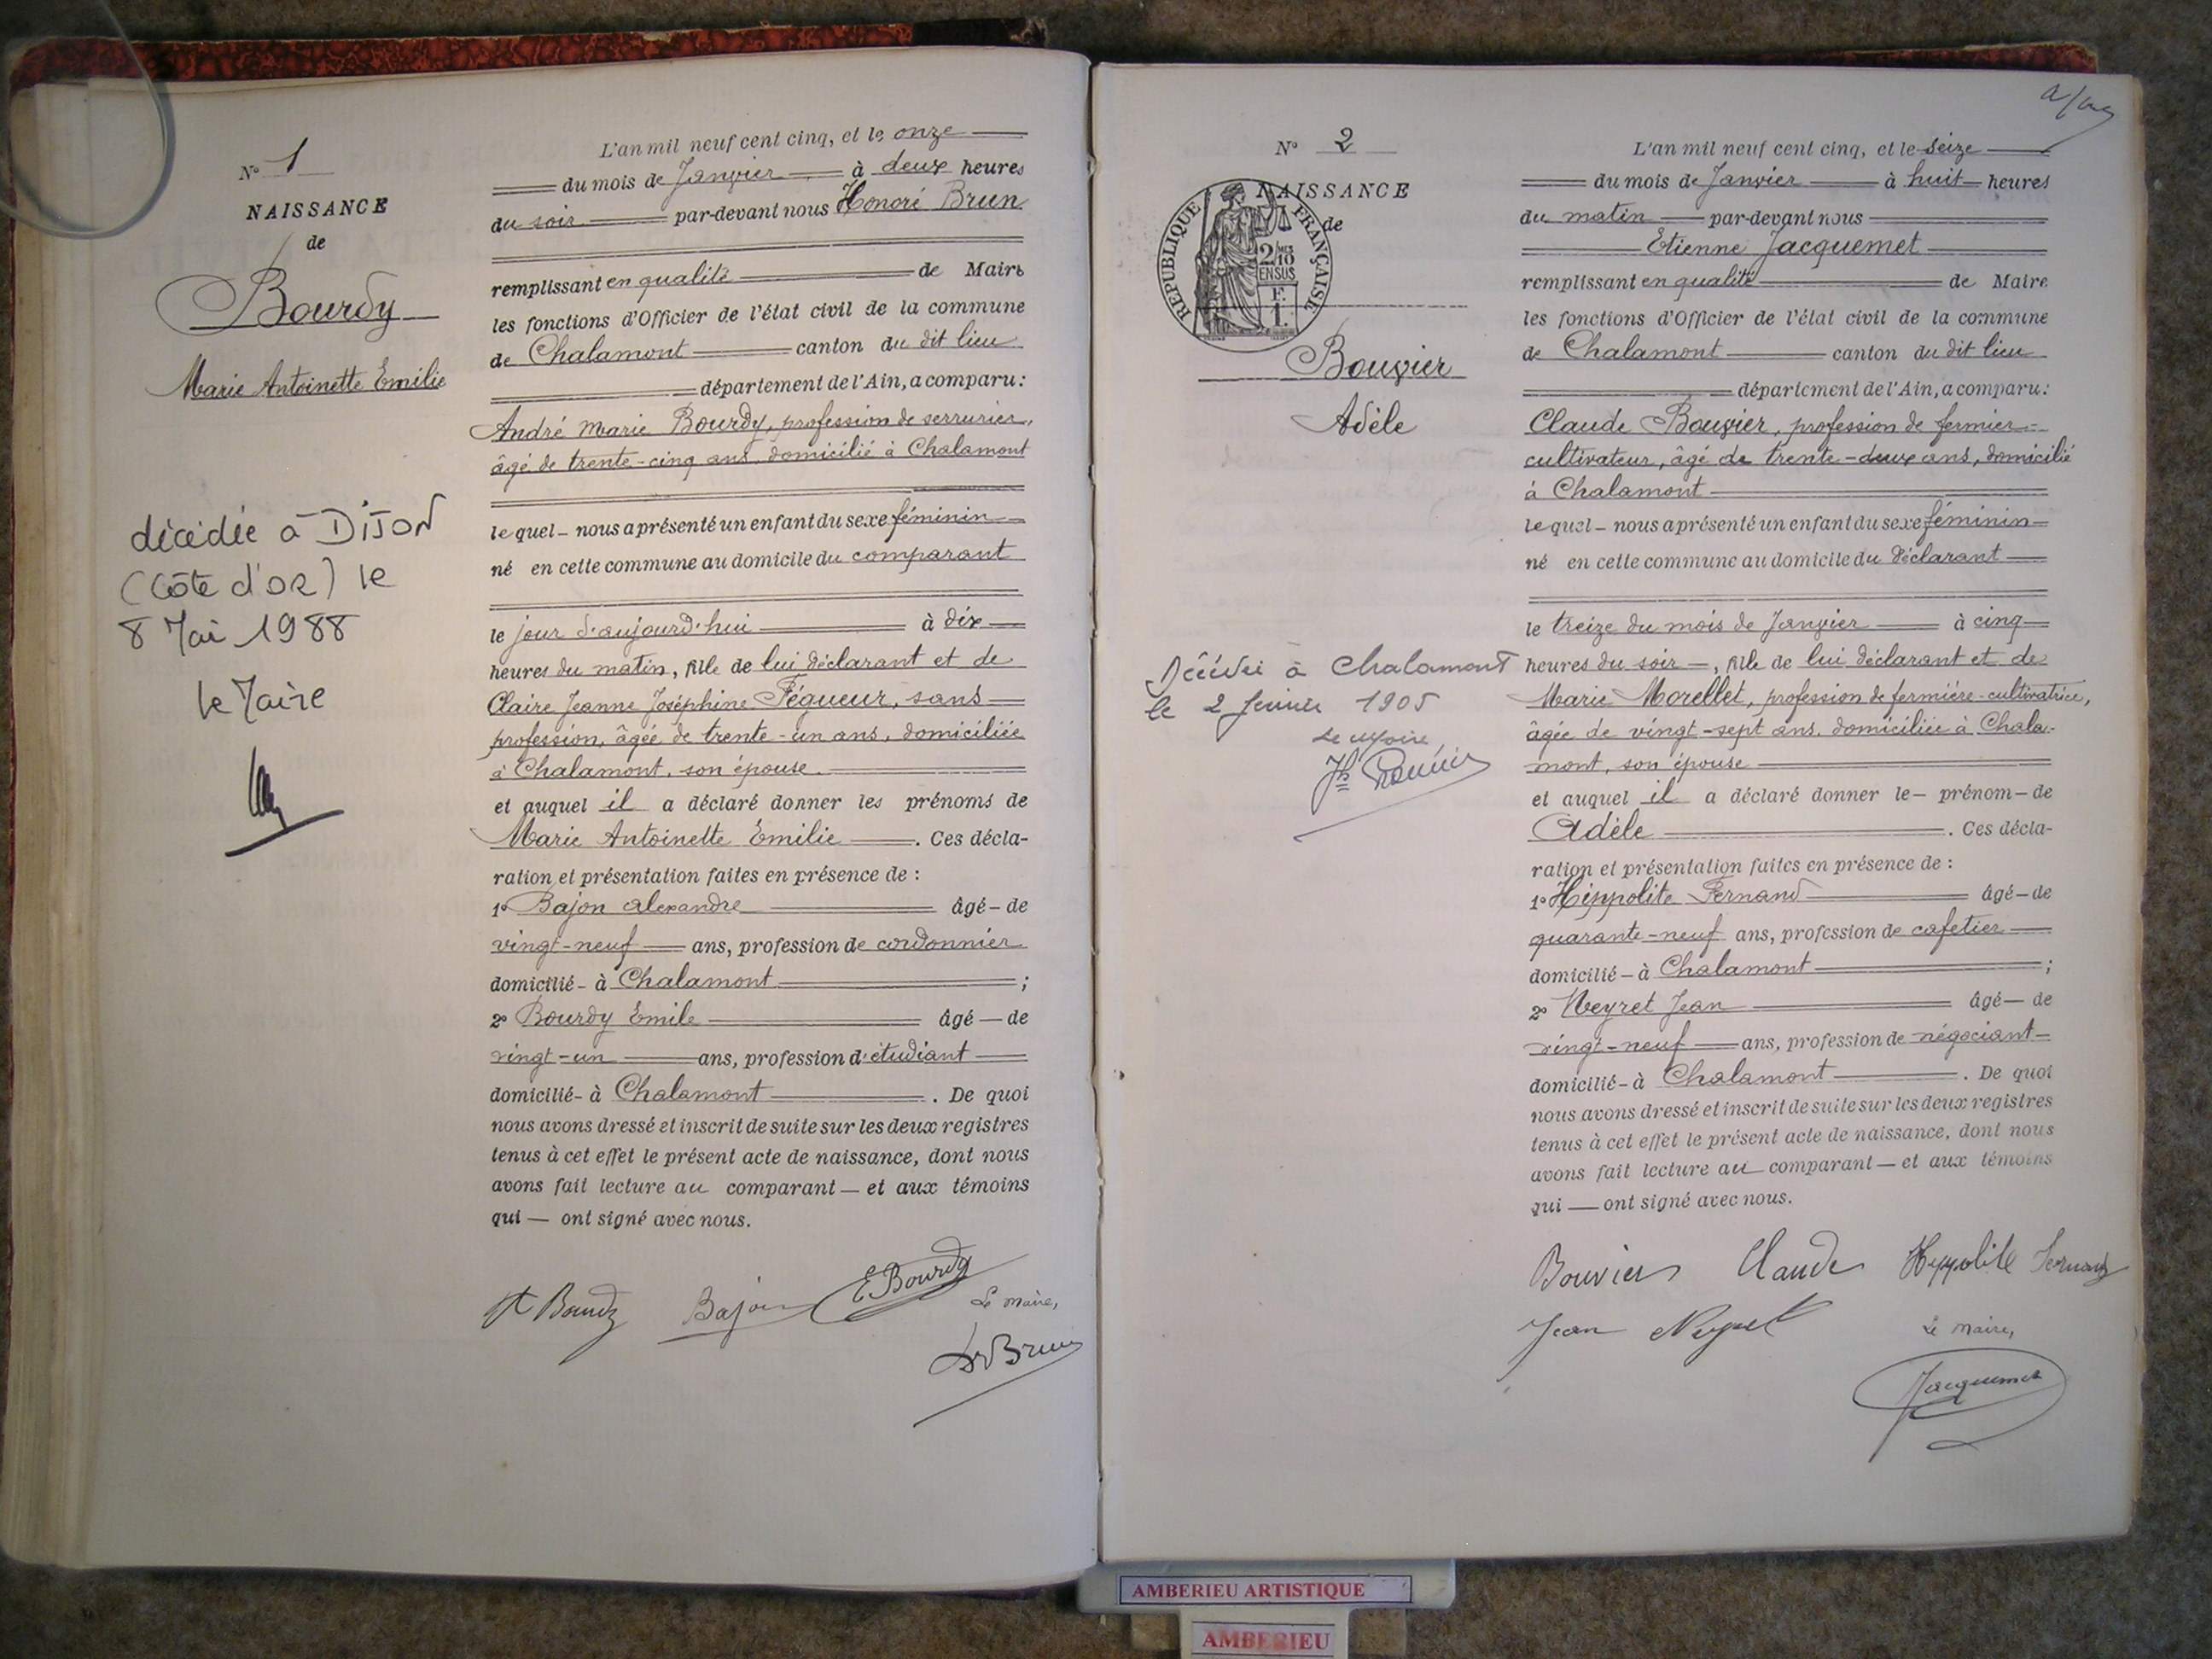 N° 1
NAISSANCE
de
Bourdy
Marie Antoinette Emilie
décédée à DIJON
(Côte d'OR) le
8 Mai 1988
le Maire
L'an mil neuf cent cinq, et le onze
du mois de Janvier à deux heures
du soir par-devant nous Honoré Brun
remplissant en qualité de Maire
les fonctions d'Officier de l'état civil de la commune
de Chalamont canton du dit lieu
département de l'Ain, a comparu :
André Marie Bourdy, profession de serrurier,
âgé de trente-cinq ans, domicilié à Chalamont
le quel – nous a présenté un enfant du sexe féminin
né en cette commune au domicile du comparant
le jour d'aujourd'hui à dix
heures du matin, fille de lui déclarant et de
Claire Jeanne Joséphine Fégueur, sans
profession, âgée de trente-un ans, domiciliée
à Chalamont, son épouse.
et auquel il a déclaré donner les prénoms de
Marie Antoinette Emilie. Ces décla-
ration et présentation faites en présence de :
1° Bajon Alexandre âgé – de
vingt-neuf ans, profession de cordonnier
domicilié – à Chalamont ;
2° Bourdy Emile âgé — de
vingt-un ans, profession d'étudiant
domicilié – à Chalamont. De quoi
nous avons dressé et inscrit de suite sur les deux registres
tenus à cet effet le présent acte de naissance, dont nous
avons fait lecture au comparant — et aux témoins
qui — ont signé avec nous.
Bourdy Bajon E. Bourdy
Le Maire,
Brun
N° 2
NAISSANCE
de
REPUBLIQUE FRANÇAISE
2/10 MES
EN SUS
F.
1.
Bouvier
Adèle
Décédée à Chalamont
le 2 février 1905
Le Maire
L'an mil neuf cent cinq, et le seize
du mois de Janvier à huit heures
du matin par-devant nous
Etienne Jacquemet
remplissant en qualité de Maire
les fonctions d'Officier de l'état civil de la commune
de Chalamont canton du dit lieu
département de l'Ain, a comparu :
Claude Bouvier, profession de fermier-
cultivateur, âgé de trente-deux ans, domicilié
à Chalamont
le quel – nous a présenté un enfant du sexe féminin
né en cette commune au domicile du déclarant
le treize du mois de Janvier à cinq
heures du soir —, fille de lui déclarant et de
Marie Morellet, profession de fermière-cultivatrice,
âgée de vingt-sept ans, domiciliée à Chala-
mont, son épouse
et auquel il a déclaré donner le – prénom – de
Adèle. Ces décla-
ration et présentation faites en présence de :
1° Hippolite Fernand âgé – de
quarante-neuf ans, profession de cafetier
domicilié – à Chalamont ;
2° Neyret Jean âgé — de
vingt-neuf ans, profession de négociant
domicilié – à Chalamont. De quoi
nous avons dressé et inscrit de suite sur les deux registres
tenus à cet effet le présent acte de naissance, dont nous
avons fait lecture au comparant — et aux témoins
qui — ont signé avec nous.
Bouvier Claude Hippolite Fernand
Jean Neyret
Le Maire,
Jacquemet
AMBERIEU ARTISTIQUE
AMBERIEU